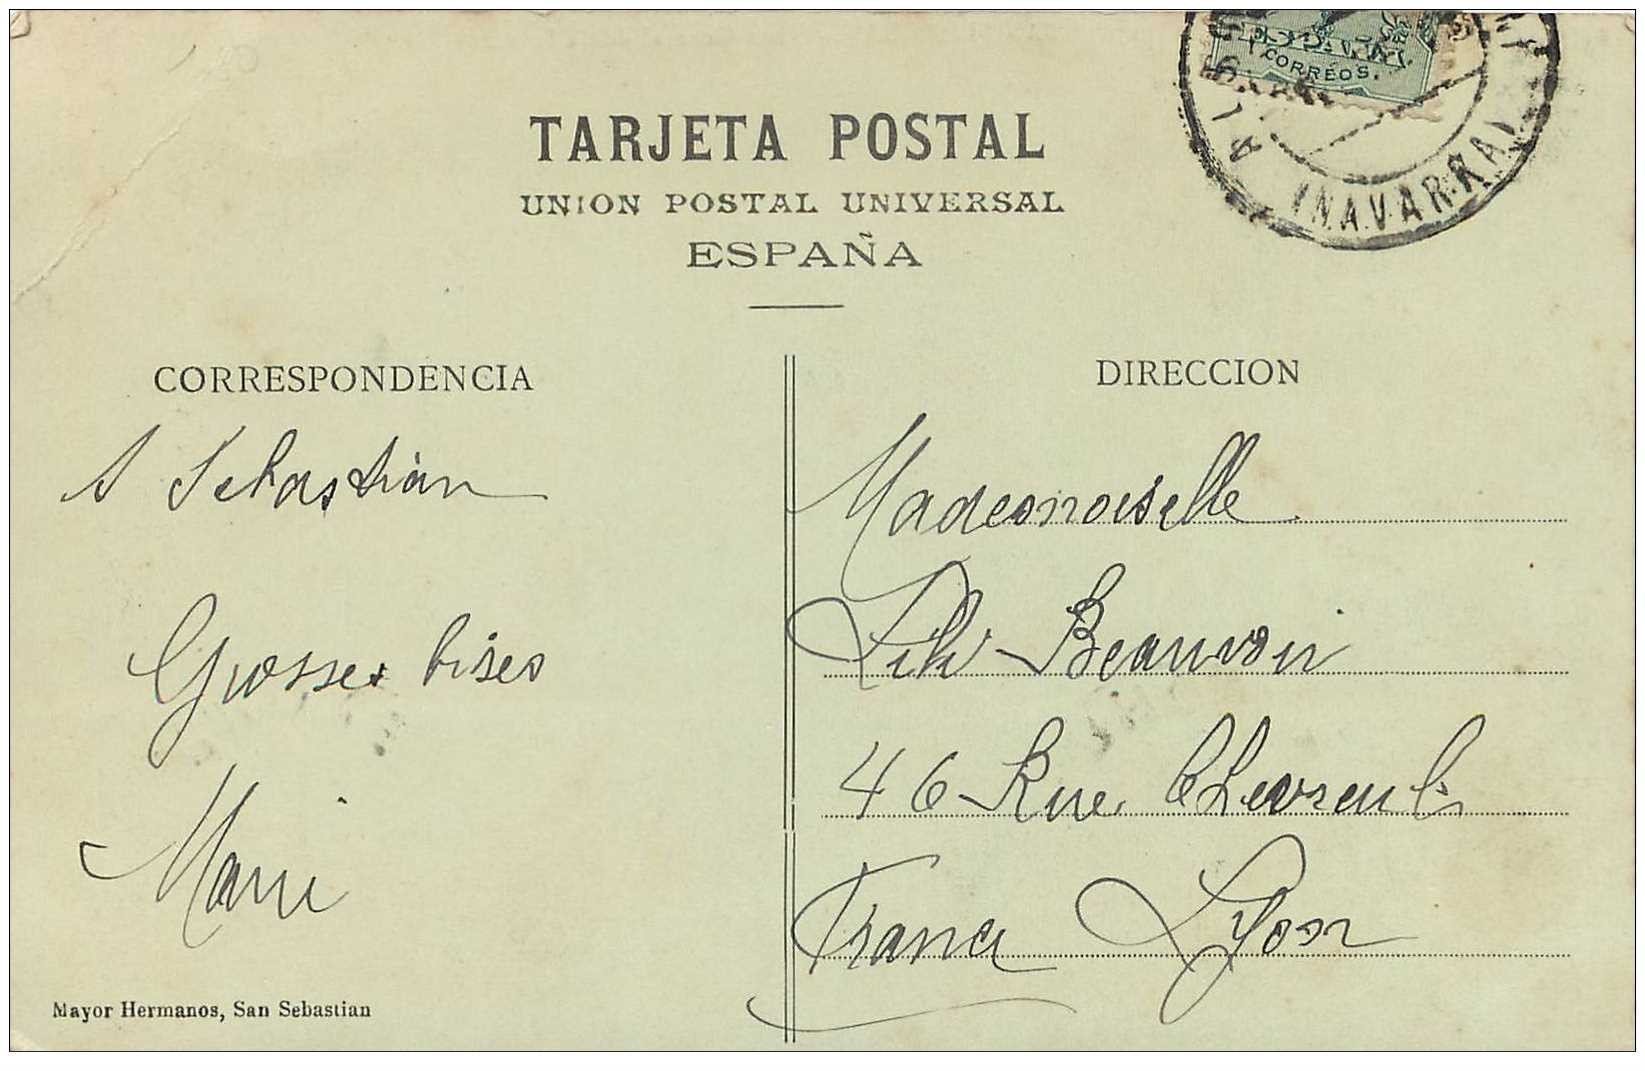 CORREOS.
ALS
(NAVARRA)
TARJETA POSTAL
UNION POSTAL UNIVERSAL
ESPAÑA
CORRESPONDENCIA
S Sebastián
Grosses bises
Marii
Mayor Hermanos, San Sebastian
DIRECCION
Mademoiselle
Lili Beauvoir
46 Rue Chevreul
France Lyon